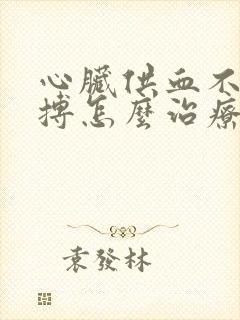 心臟供血不
搏怎麼治療
袁發林